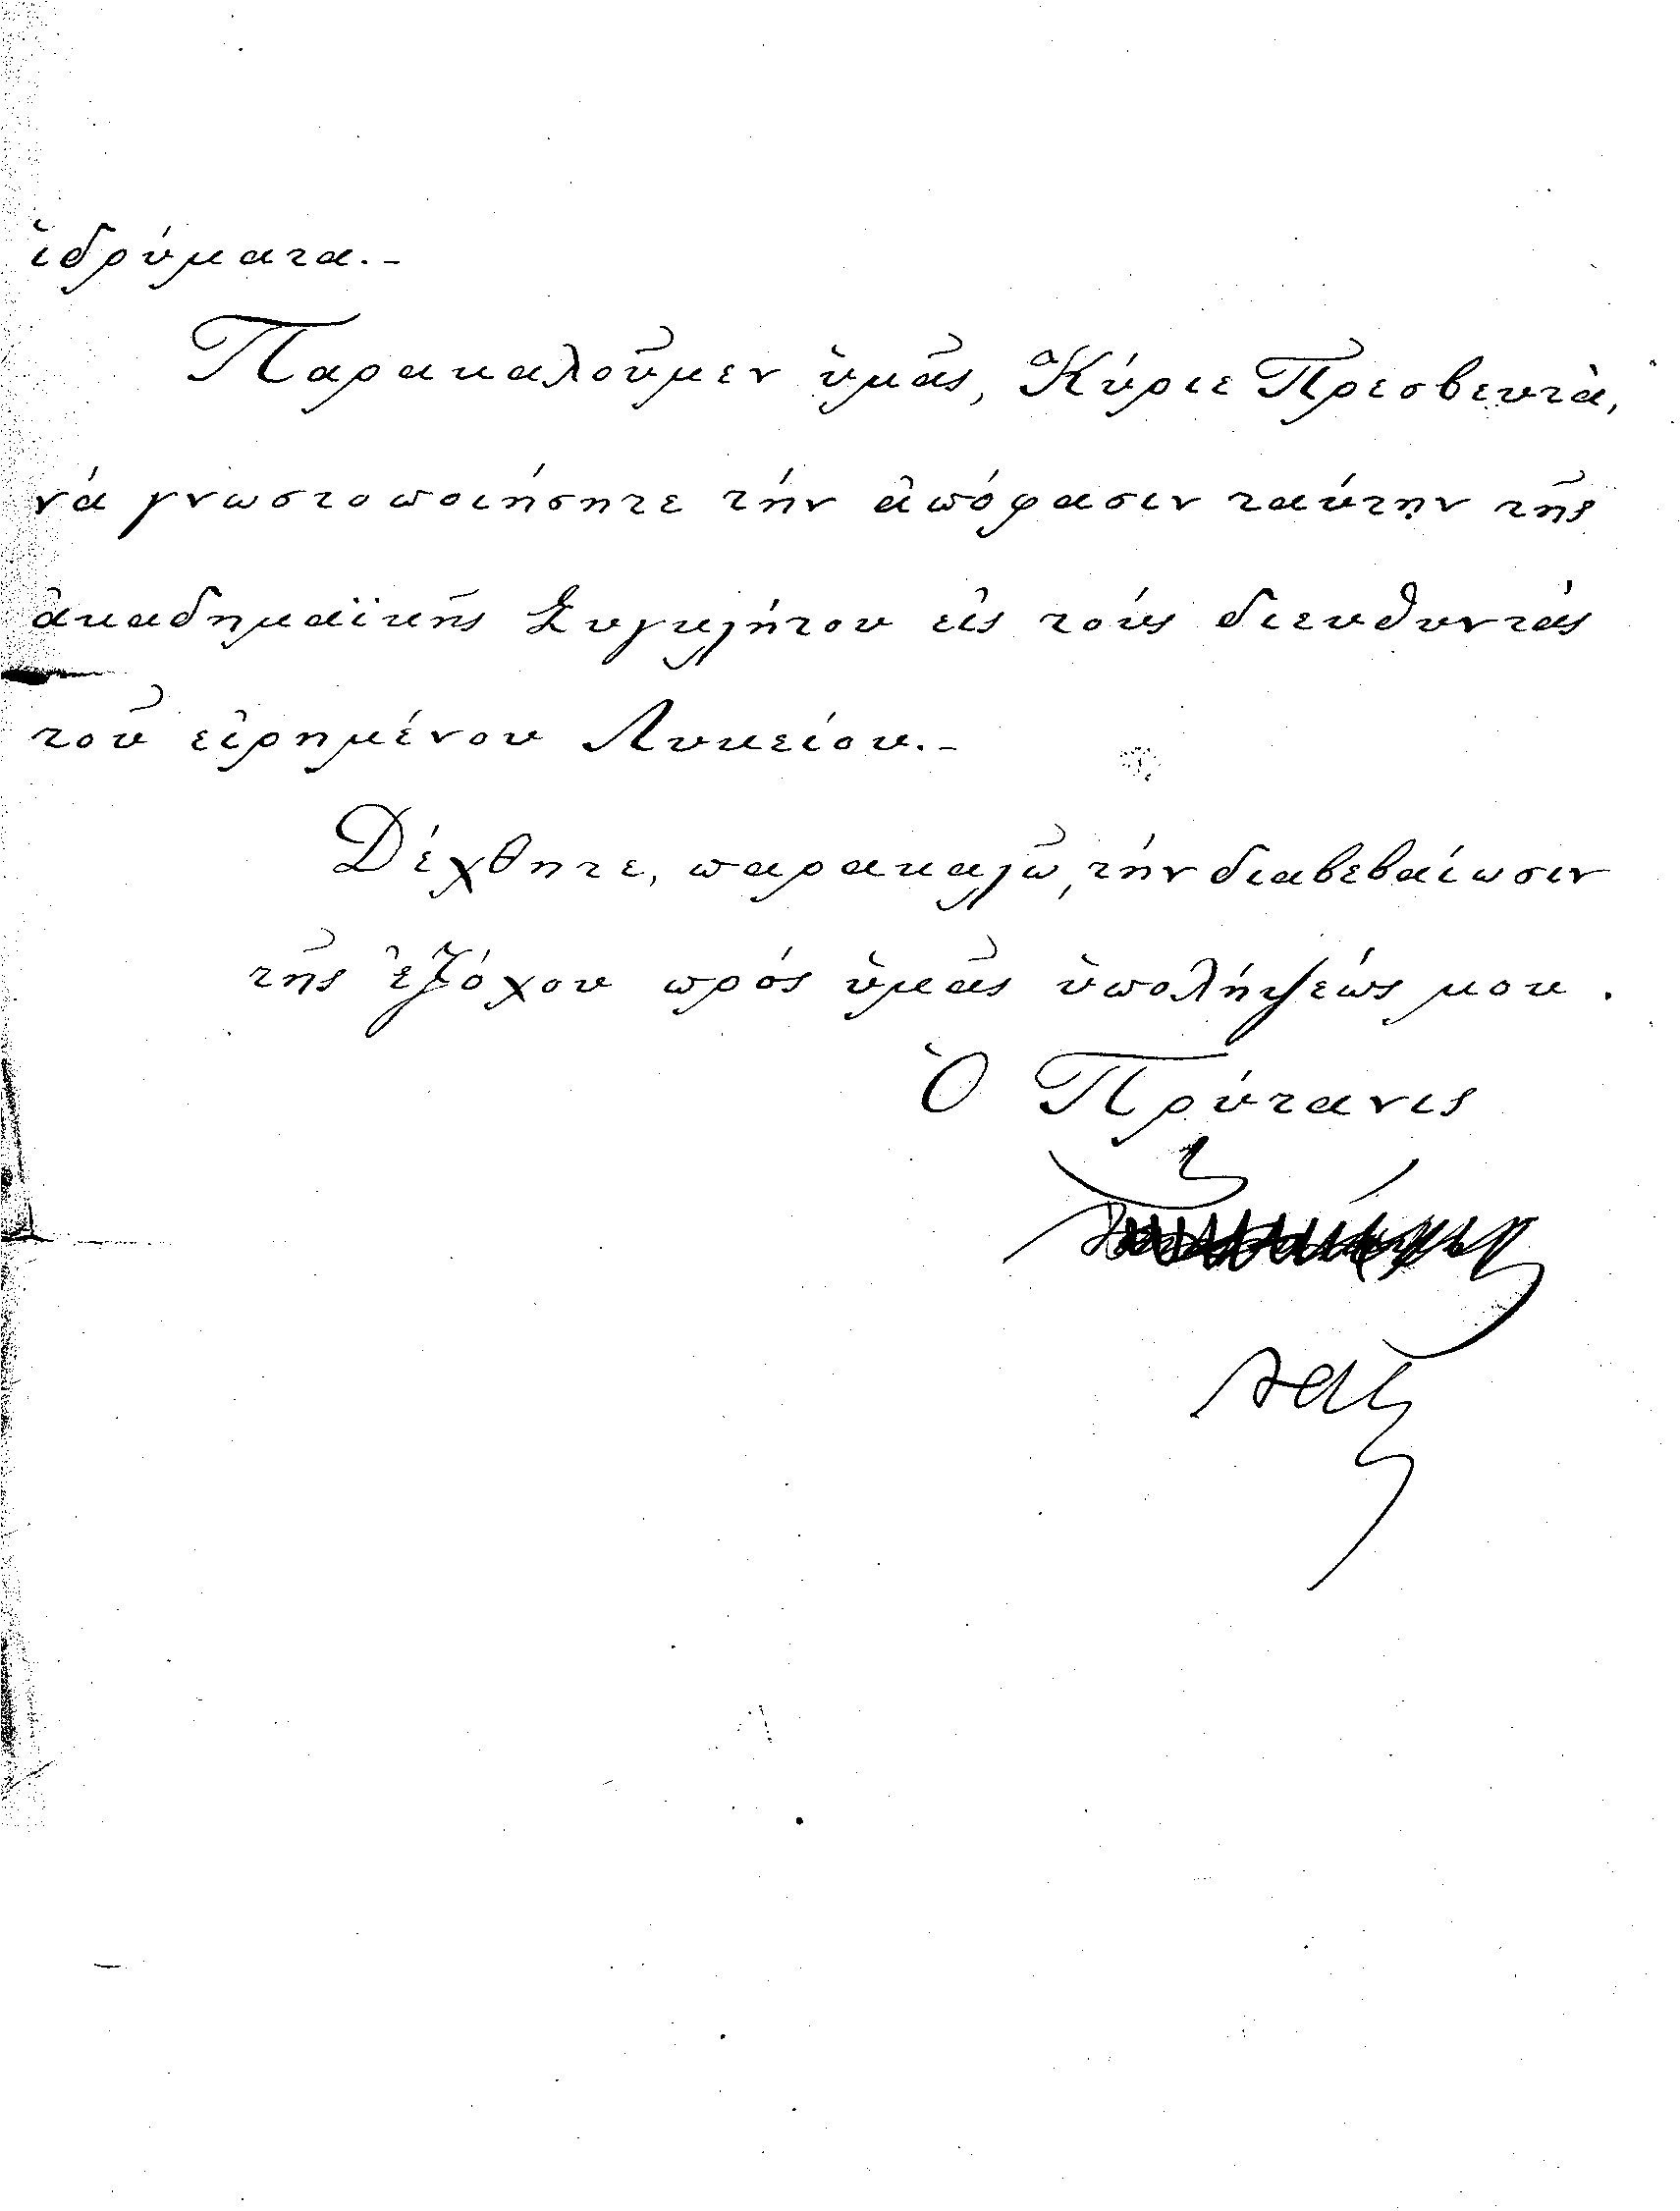 ἱδρύματα.-
Παρακαλοῦμεν ὑμᾶς, Κύριε Πρεσβευτὰ,
νά γνωστοποιήσητε τήν ἀπόφασιν ταύτην τῆς
ἀκαδημαϊκῆς Συγκλήτου εἰς τούς διευθυντάς
τοῦ εἰρημένου Λυκείου.-
Δέχθητε, παρακαλῶ, τήν διαβεβαίωσιν
τῆς ἐξόχου πρός ὑμᾶς ὑπολήψεώς μου.
Ὁ Πρύτανις